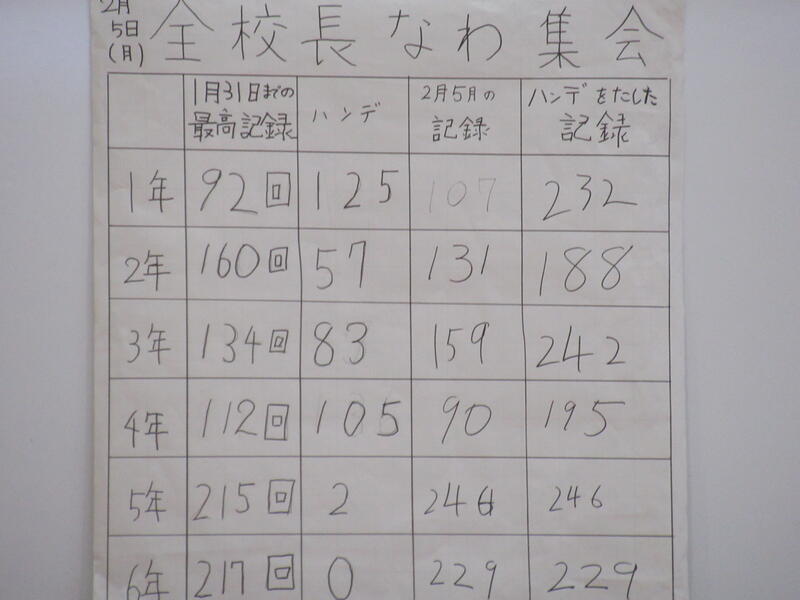 2月
5日
(月)
全校長なわ集会
1月31日までの
最高記録
ハンデ
2月5月の
記録
ハンデをたした
記録
1年 92回 125 107 232
2年 160回 57 131 188
3年 134回 83 159 242
4年 112回 105 90 195
5年 215回 2 244 246
6年 217回 0 229 229